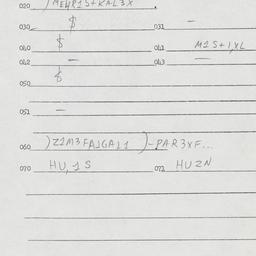 020 )MEHR1S+KAL3X.
030 $ 031 -
040 $ 041 M1S+1,XL
042 - 043 —
050 $
051 -
060 )Z1M3FAJGAL1 )-PAR3XF...
070 HU,1S 072 HU2N